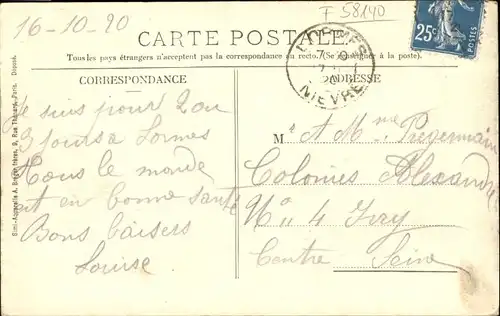 16-10-20
F 58140
CARTE POSTALE
Tous les pays étrangers n'acceptent pas la correspondance au recto. (Se renseigner à la poste).
CORRESPONDANCE
ADRESSE
LORMES
NIEVRE
25c
Je suis pour 2 ou
3 jours a Lormes
Tous le monde
est en bonne santé
Bons baisers
Louise
M r & Mme Pregermain
Colonies Alexandre
N° 4 Ivry
Centre Seine
Simi-Aquarelle A. Breger frères, 9, Rue Thénard, Paris. Déposé.